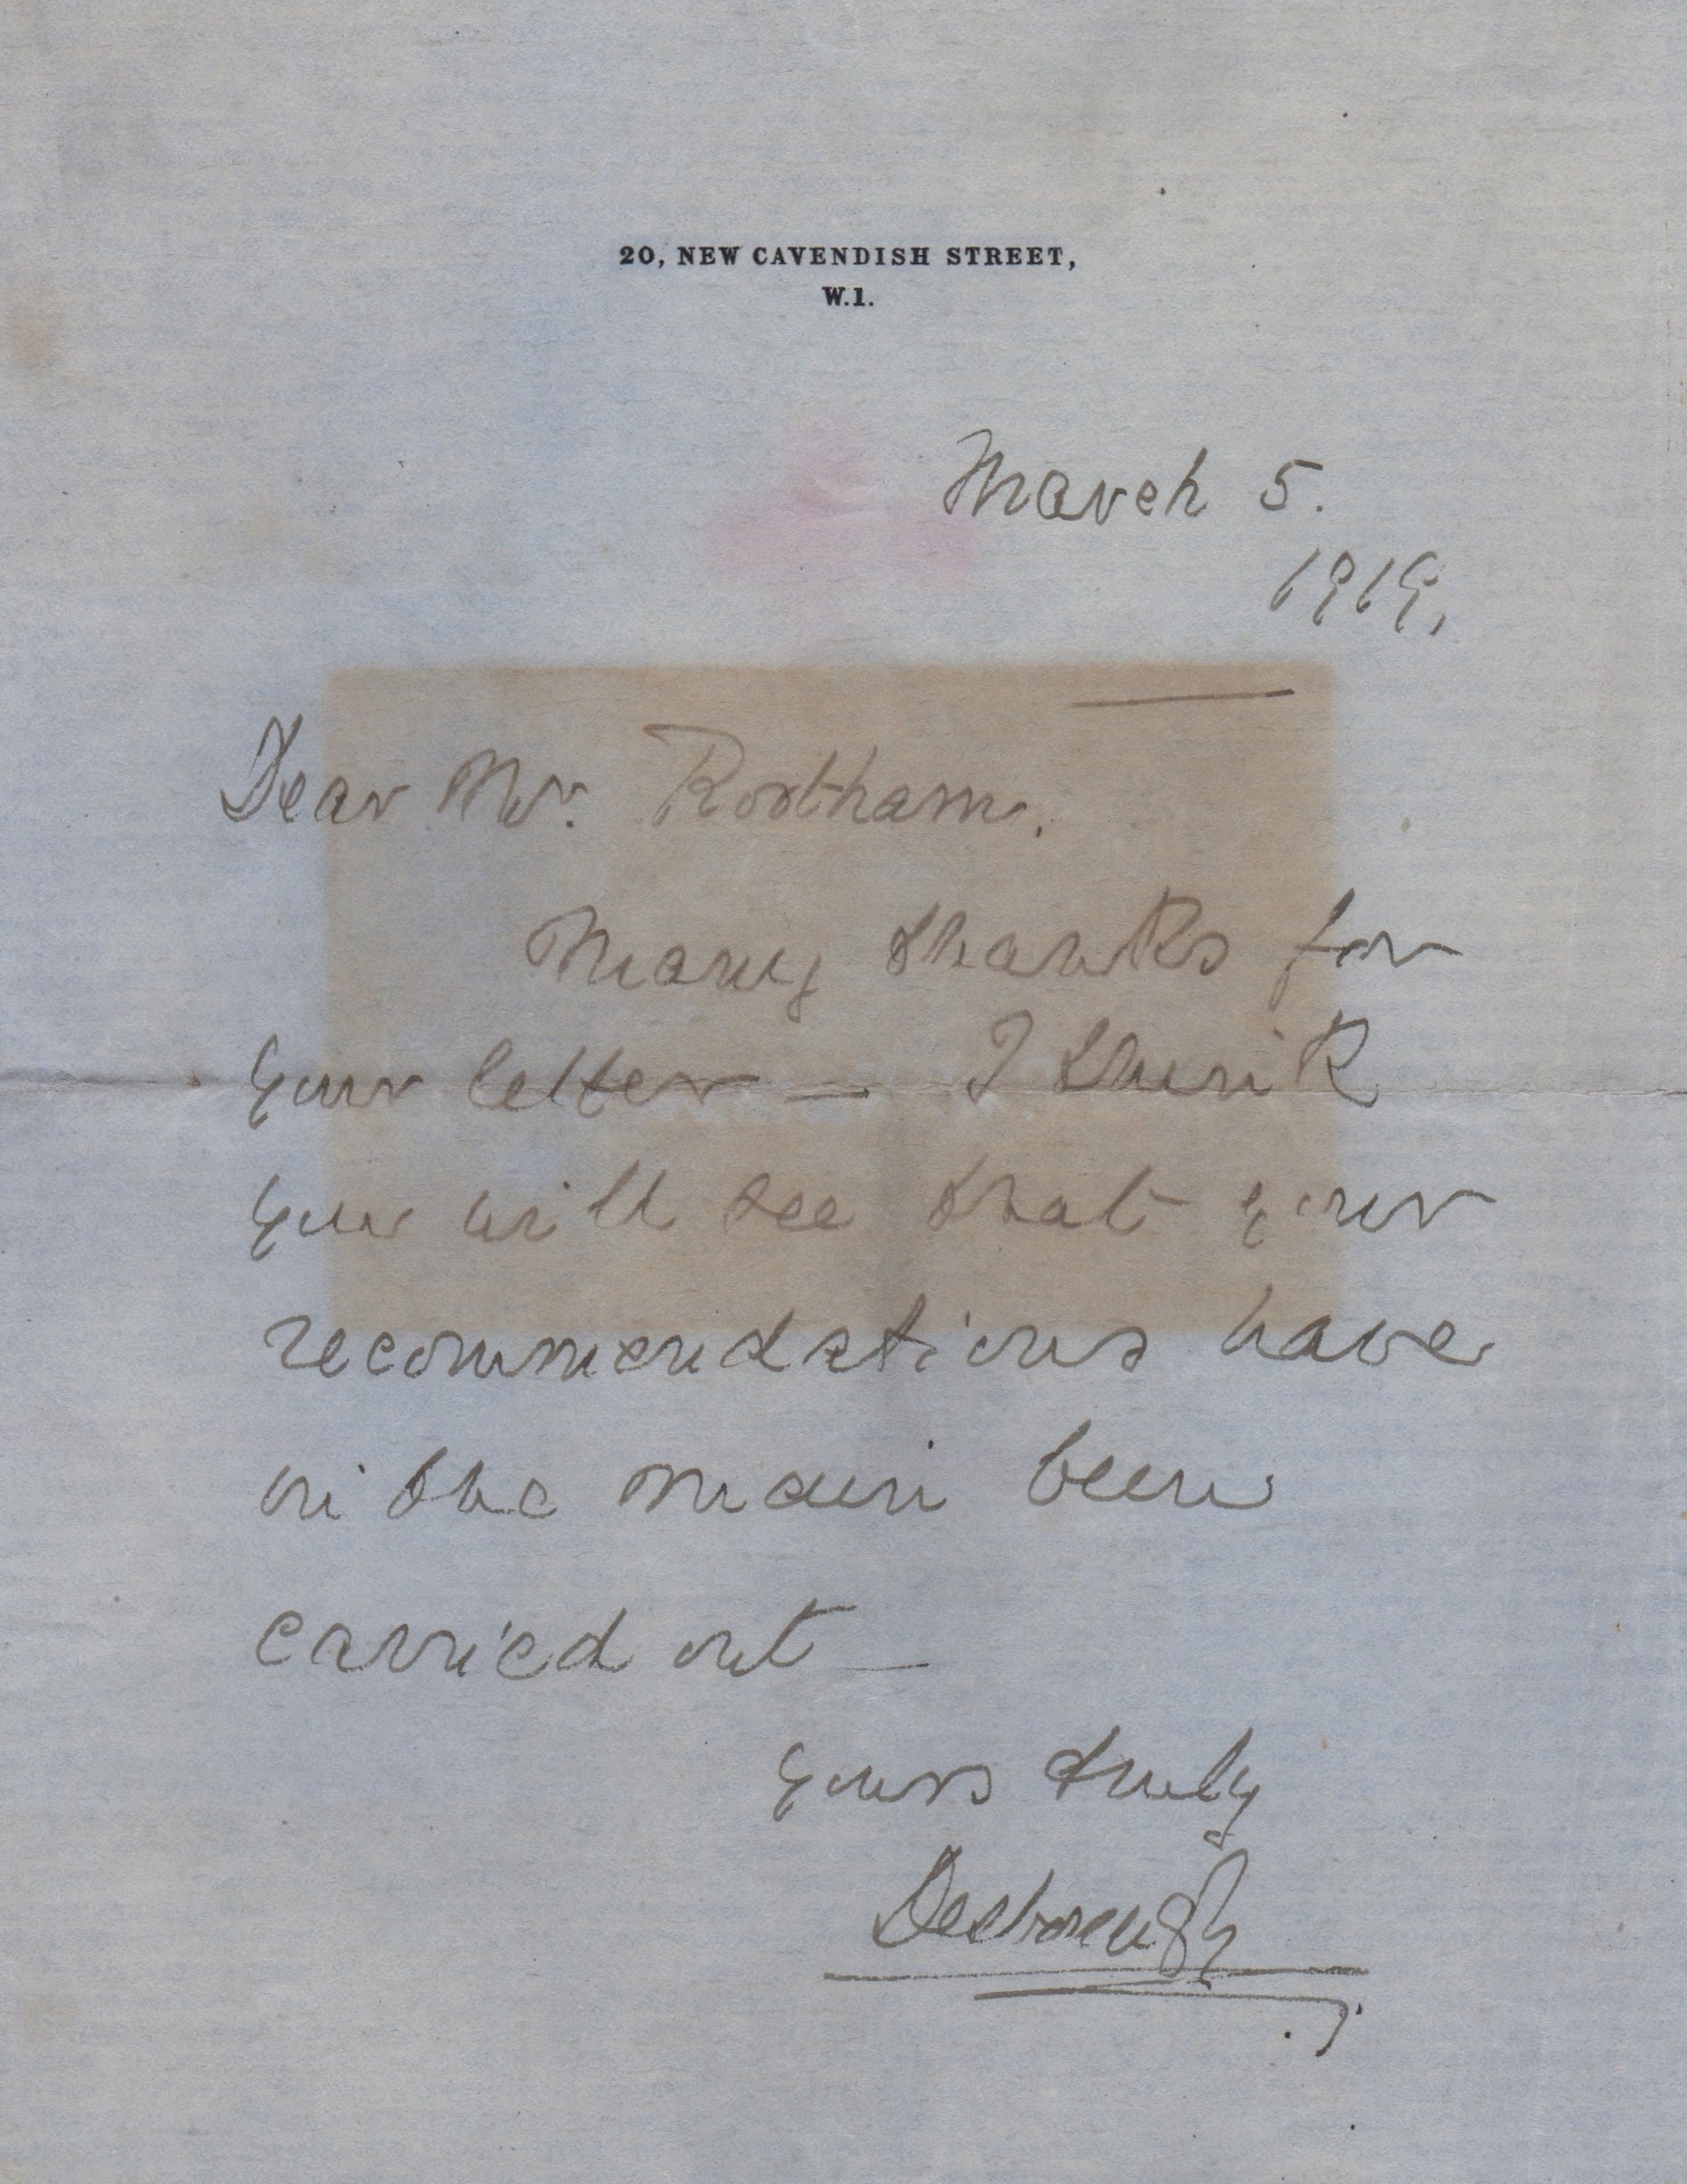 20, NEW CAVENDISH STREET,
W.1.
March 5.
1919.
Dear Mr. Rootham.
Many thanks for
your letter — I think
you will see that your
recommendations have
in the main been
carried out —
Yours truly
Desborough